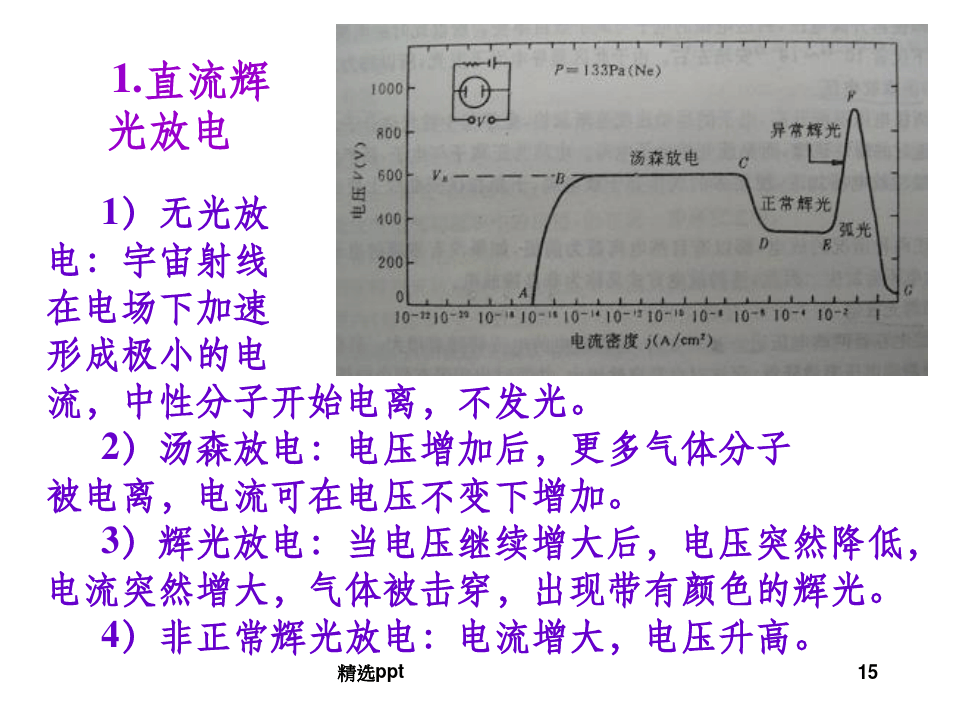 1.直流辉
光放电
1）无光放
电：宇宙射线
在电场下加速
形成极小的电
流，中性分子开始电离，不发光。
2）汤森放电：电压增加后，更多气体分子
被电离，电流可在电压不变下增加。
3）辉光放电：当电压继续增大后，电压突然降低，
电流突然增大，气体被击穿，出现带有颜色的辉光。
4）非正常辉光放电：电流增大，电压升高。
P=133Pa(Ne)
V
电压 V(V)
1000
800
600
400
200
0
F
异常辉光
汤森放电
C
B
正常辉光
D
E
弧光
A
G
10⁻²² 10⁻²⁰ 10⁻¹⁸ 10⁻¹⁶ 10⁻¹⁴ 10⁻¹² 10⁻¹⁰ 10⁻⁸ 10⁻⁶ 10⁻⁴ 10⁻² 1
电流密度 j(A/cm²)
精选ppt
15